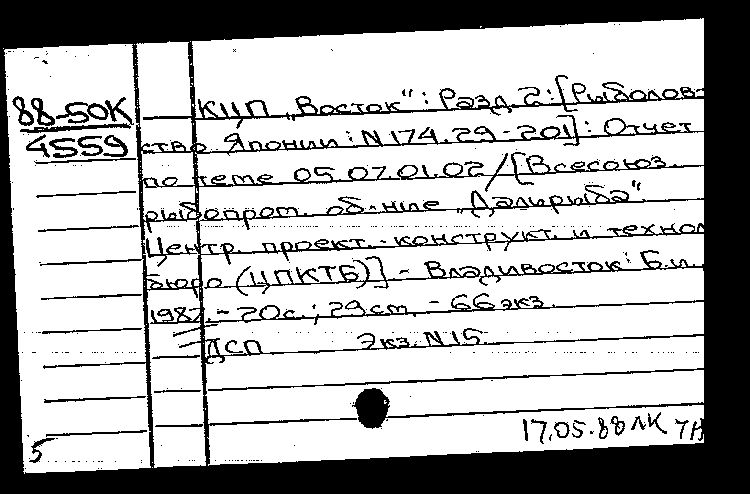 88-50К
4559
КЦП „Восток“: Разд. 2: [Рыболов-
ство Японии: N 174.29-201]: Отчет
по теме 05.07.01.02 / [Всесоюз.
рыбопром. об-ние „Дальрыба“.
Центр. проект.-конструкт. и технол.
бюро (ЦПКТБ)] - Владивосток: Б.и.,
1987. - 20с.; 29см. - 66 экз.
ДСП Экз. N 15
17.05.88 ЛК
5